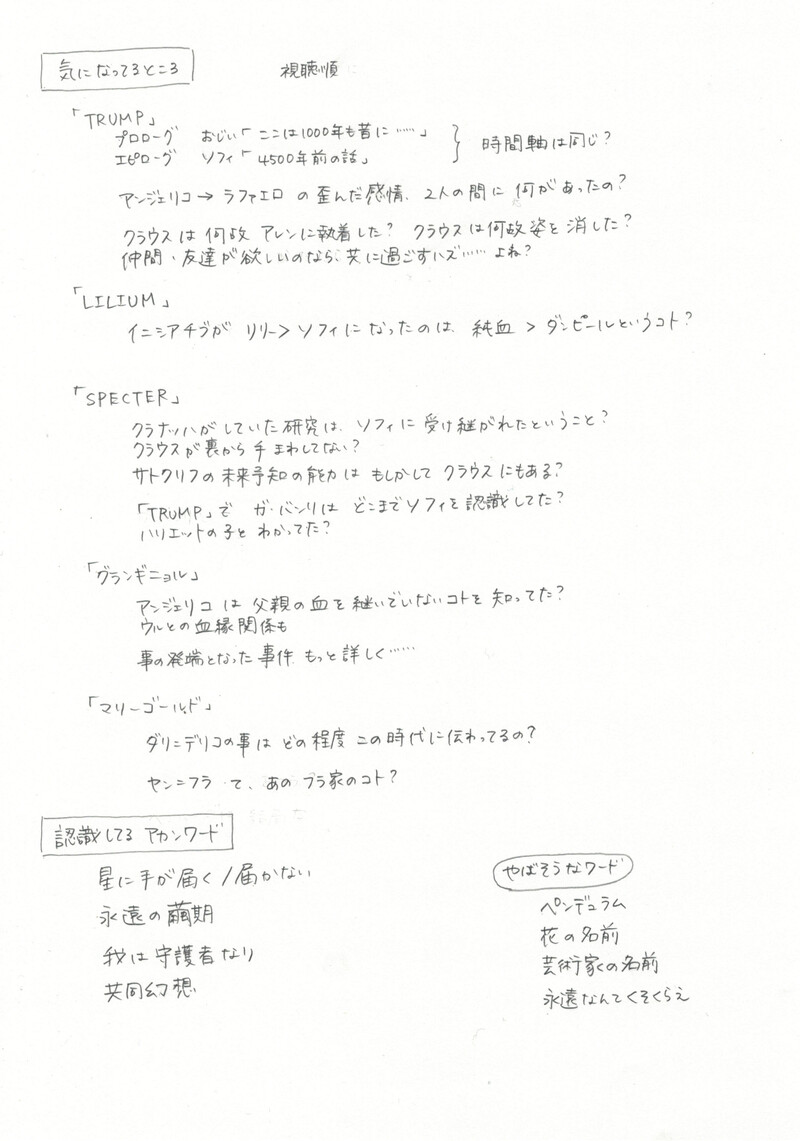 気になってるところ
視聴順
「TRUMP」
プロローグ おじい「ここは1000年も昔に……」
エピローグ ソフィ「4500年前の話」
} 時間軸は同じ?
アンジェリコ→ラファエロの歪んだ感情、2人の間に何があったの?
クラウスは何故アレンに執着した? クラウスは何故姿を消した?
仲間・友達が欲しいのなら、共に過ごすハズ……よね?
「LILIUM」
イニシアチブがリリー>ソフィになったのは、純血>ダンピールというコト?
「SPECTER」
クラナッハがしていた研究は、ソフィに受け継がれたということ?
クラウスが裏から手まわしてない?
サトクリフの未来予知の能力はもしかしてクラウスにもある?
「TRUMP」でガ・バンリはどこまでソフィを認識してた?
ハリエットの子とわかってた?
「グランギニョル」
アンジェリコは父親の血を継いでいないコトを知ってた?
ウルとの血縁関係も
事の発端となった事件もっと詳しく……
「マリーゴールド」
ダリ=デリコの事はどの程度この時代に伝わってるの?
ヤン=フラて、あのフラ家のコト?
認識してるアカンワード
星に手が届く/届かない
永遠の繭期
我は守護者なり
共同幻想
やばそうなワード
ペンデュラム
花の名前
芸術家の名前
永遠なんてくそくらえ